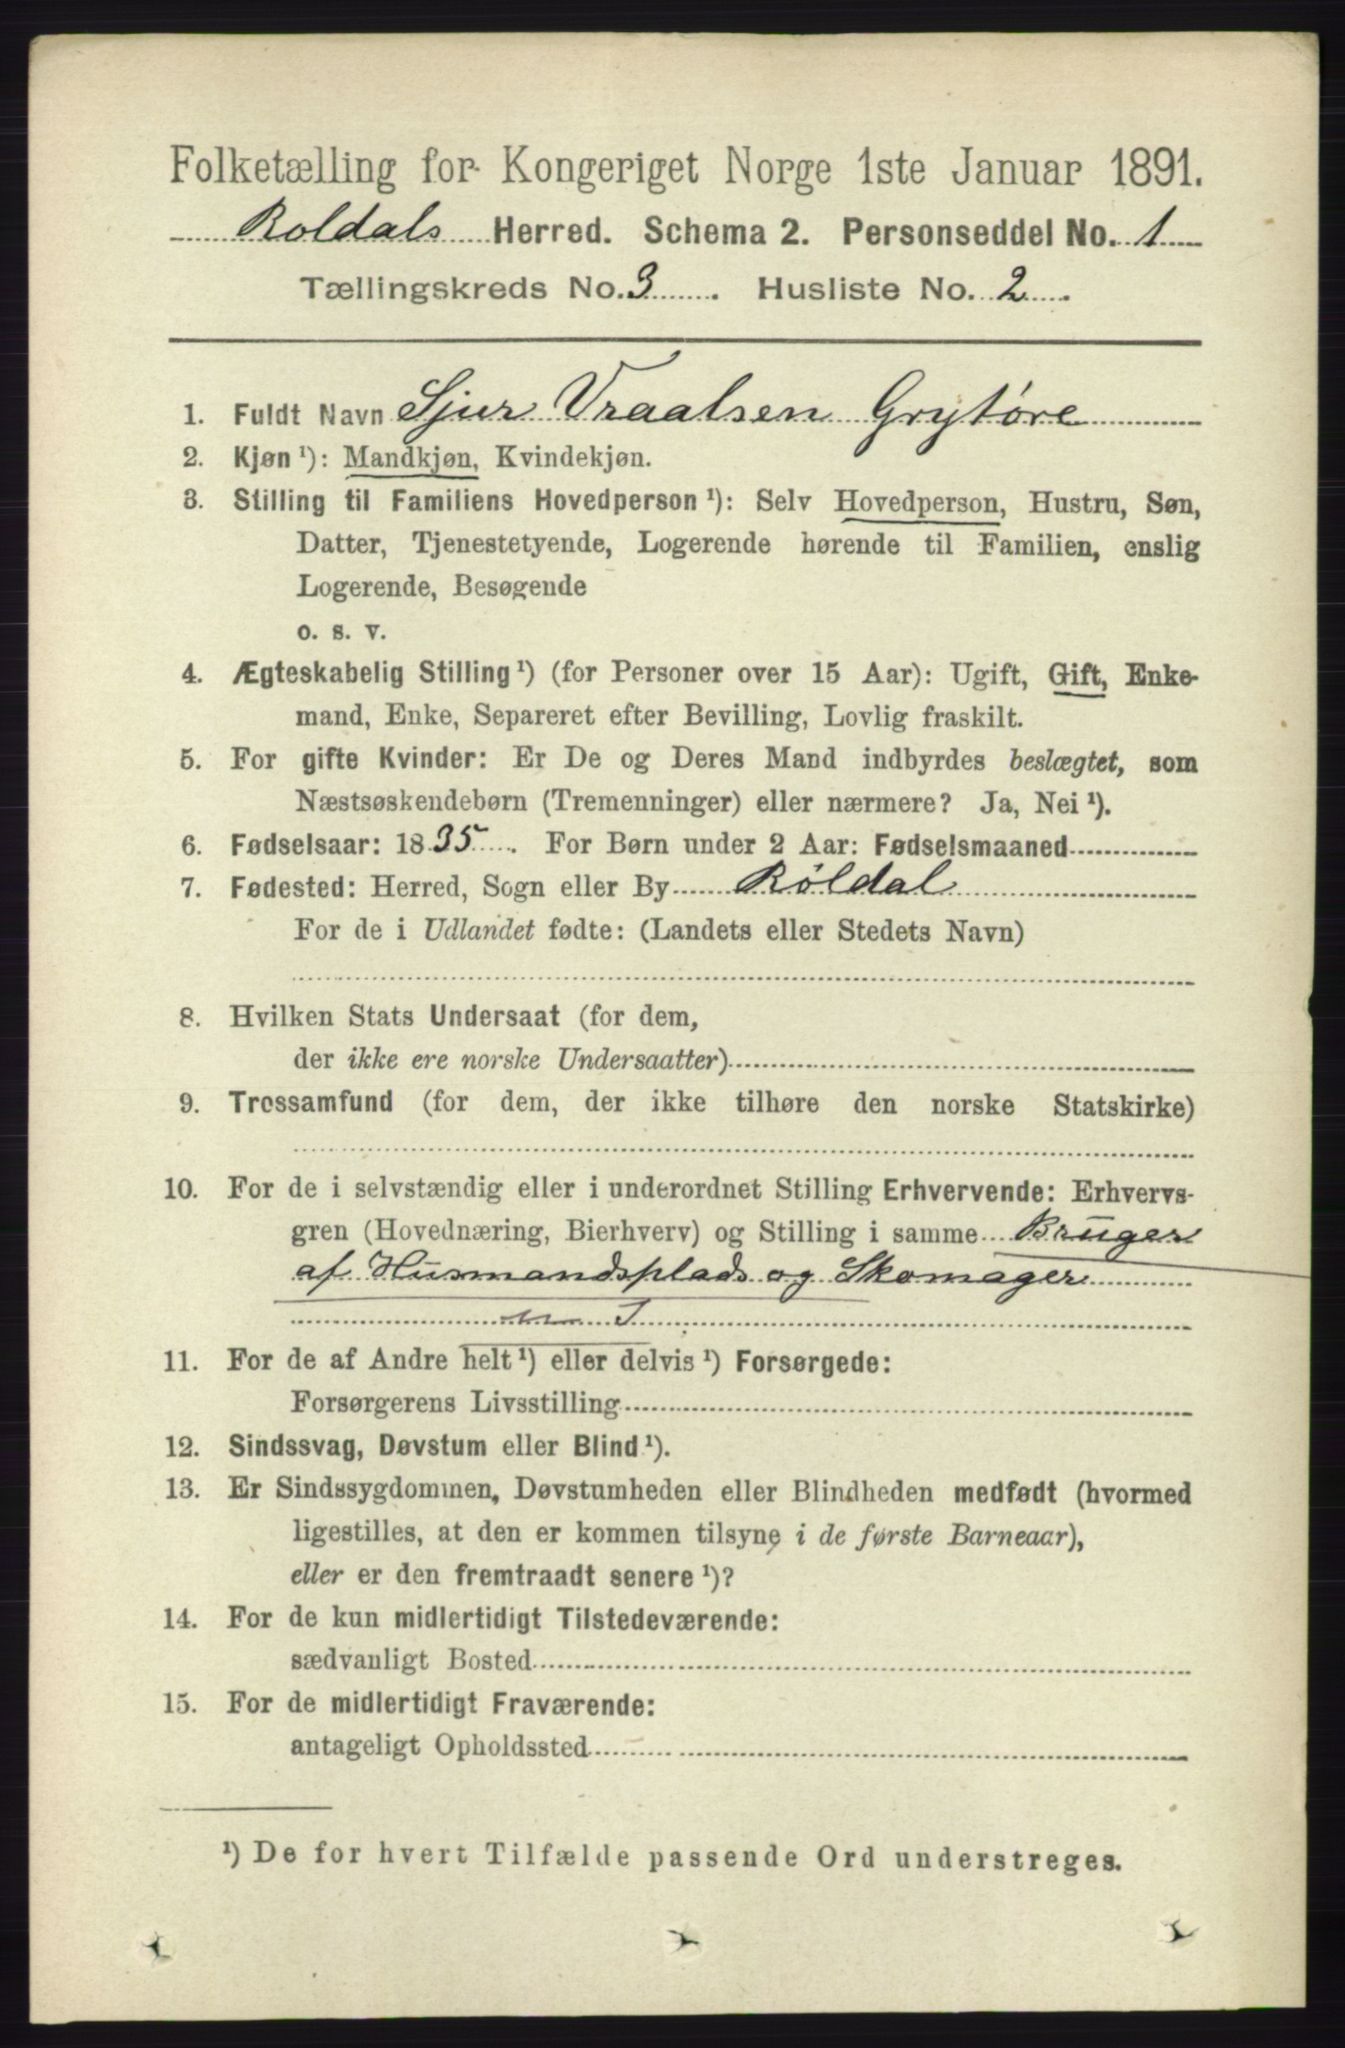 Folketælling for Kongeriget Norge 1ste Januar 1891.
Roldals Herred. Schema 2. Personseddel No. 1
Tællingskreds No. 3. Husliste No. 2.
1. Fuldt Navn Sjur Vraalsen Grytøre
2. Kjøn ¹): Mandkjøn, Kvindekjøn.
3. Stilling til Familiens Hovedperson ¹): Selv Hovedperson, Hustru, Søn,
Datter, Tjenestetyende, Logerende hørende til Familien, enslig
Logerende, Besøgende
o. s. v.
4. Ægteskabelig Stilling ¹) (for Personer over 15 Aar): Ugift, Gift, Enke-
mand, Enke, Separeret efter Bevilling, Lovlig fraskilt.
5. For gifte Kvinder: Er De og Deres Mand indbyrdes beslægtet, som
Næstsøskendebørn (Tremenninger) eller nærmere? Ja, Nei ¹).
6. Fødselsaar: 1835. For Børn under 2 Aar: Fødselsmaaned
7. Fødested: Herred, Sogn eller By Röldal
For de i Udlandet fødte: (Landets eller Stedets Navn)
8. Hvilken Stats Undersaat (for dem,
der ikke ere norske Undersaatter)
9. Trossamfund (for dem, der ikke tilhøre den norske Statskirke)
10. For de i selvstændig eller i underordnet Stilling Erhvervende: Erhvervs-
gren (Hovednæring, Bierhverv) og Stilling i samme Brüger
af Husmandsplads og Skomager
11. For de af Andre helt ¹) eller delvis ¹) Forsørgede:
Forsørgerens Livsstilling
12. Sindssvag, Døvstum eller Blind ¹).
13. Er Sindssygdommen, Døvstumheden eller Blindheden medfødt (hvormed
ligestilles, at den er kommen tilsyne i de første Barneaar),
eller er den fremtraadt senere ¹)?
14. For de kun midlertidigt Tilstedeværende:
sædvanligt Bosted
15. For de midlertidigt Fraværende:
antageligt Opholdssted
¹) De for hvert Tilfælde passende Ord understreges.